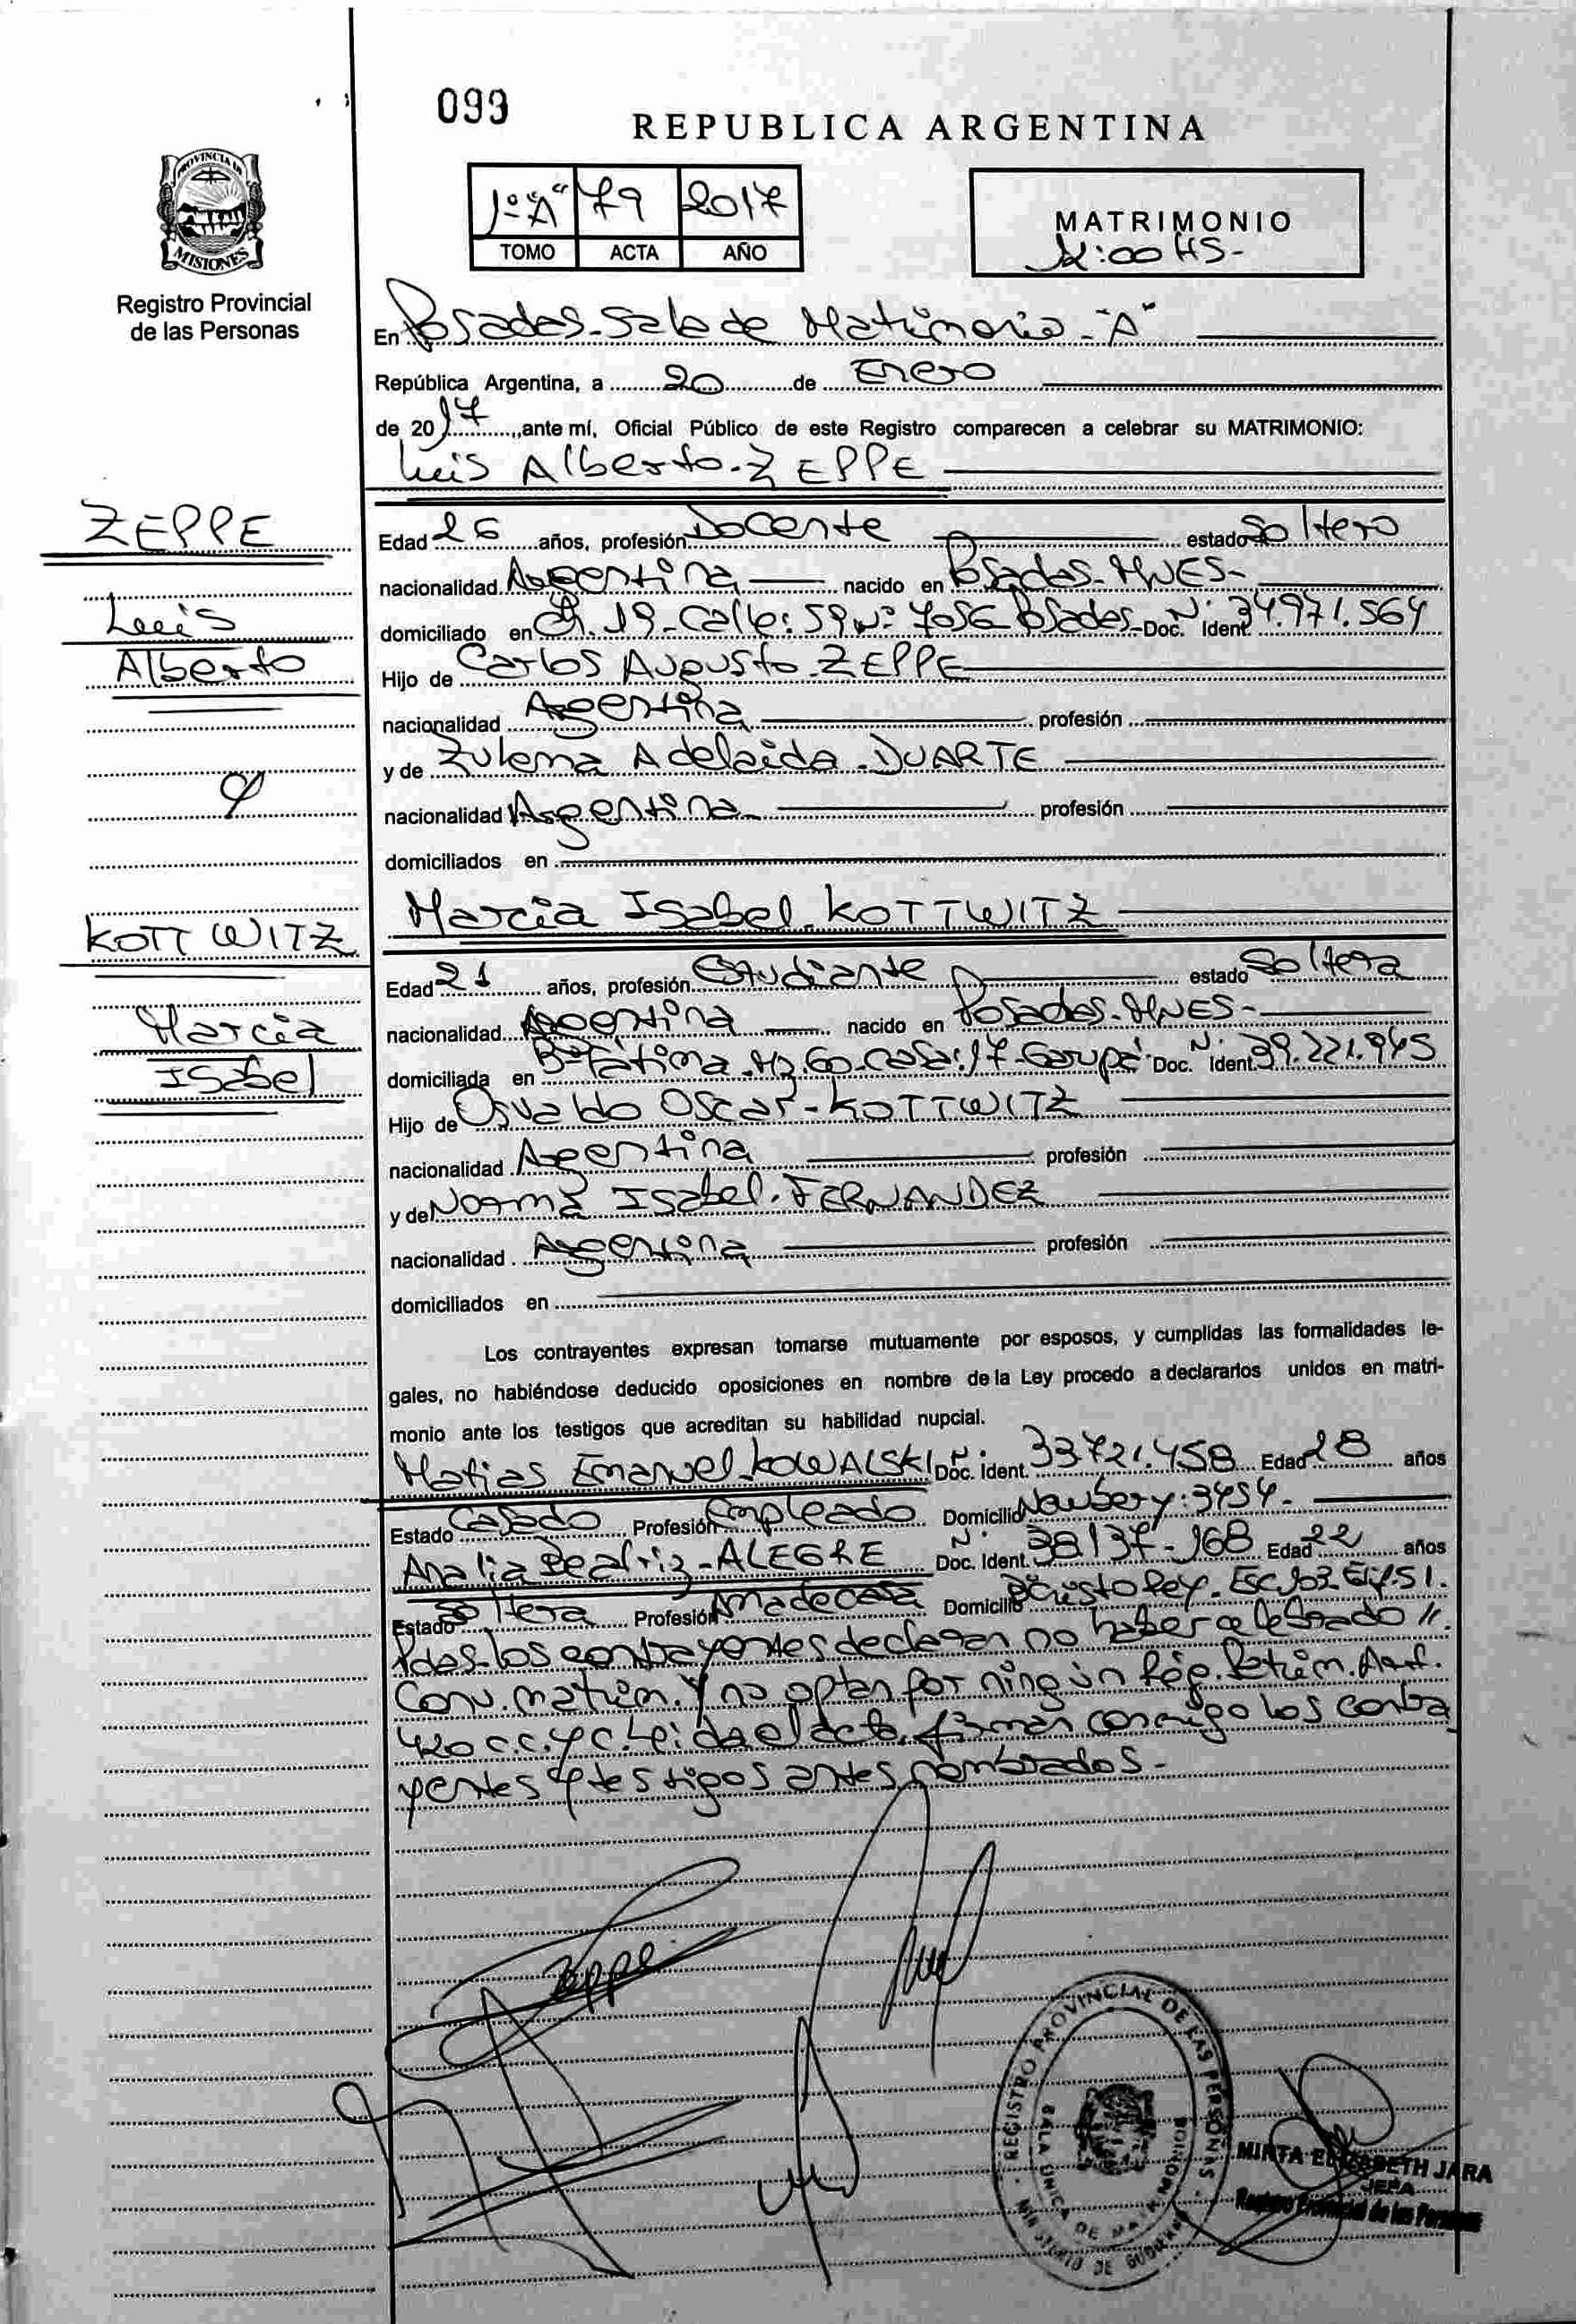 099
REPUBLICA ARGENTINA
PROVINCIA DE
MISIONES
Registro Provincial
de las Personas
1º "A" 79 2017
TOMO ACTA AÑO
MATRIMONIO
:00 HS-
En Posadas-Sala de Matrimonio-"A"
República Argentina, a 20 de Enero
de 2017, ante mí, Oficial Público de este Registro comparecen a celebrar su MATRIMONIO:
Luis Alberto-ZEPPE
ZEPPE
Luis
Alberto
Edad 26 años, profesión Docente estado Soltero
nacionalidad Argentina nacido en Posadas-MNES-
domiciliado en Ch. 19-Calle: 59 Nº 7056-Posadas-Doc. Nº Ident. 34.971.564
Hijo de Carlos Augusto-ZEPPE
nacionalidad Argentina profesión
y de Zulema Adelaida-DUARTE
y
nacionalidad Argentina profesión
domiciliados en
Marcia Isabel-KOTTWITZ
KOTTWITZ
Marcia
Isabel
Edad 21 años, profesión Estudiante estado Soltera
nacionalidad Argentina nacido en Posadas-MNES-
domiciliada en Bº Fátima-Mz.60-Casa:17-Garupá Doc. Nº Ident. 39.221.945
Hijo de Osvaldo Oscar-KOTTWITZ
nacionalidad Argentina profesión
y de Norma Isabel-FERNANDEZ
nacionalidad Argentina profesión
domiciliados en
Los contrayentes expresan tomarse mutuamente por esposos, y cumplidas las formalidades le-
gales, no habiéndose deducido oposiciones en nombre de la Ley procedo a declararlos unidos en matri-
monio ante los testigos que acreditan su habilidad nupcial.
Matias Emanuel-KOWALSKI Doc. Nº Ident. 33721.458 Edad 28 años
Estado Casado Profesión Empleado Domicilio Newbery:3454-
Analia Beatriz-ALEGRE Doc. Nº Ident. 38137-168 Edad 22 años
Estado Soltera Profesión Amadecasa Domicilio Bº Cristo Rey-Esc.103
Pdas-los contrayentes declaran no haber celebrado //
Conv. matrim. y no optan por ningún Rég. Patrim. Art.
420 C.C. y C. Leida el acta, firman conmigo los contra
yentes y testigos antes nombrados-
Zeppe
REGISTRO PROVINCIAL DE LAS PERSONAS
SALA UNICA DE MATRIMONIOS
MINISTERIO DE GOBIERNO
MIRTA ELIZABETH JARA
JEFA
Registro Provincial de las Personas